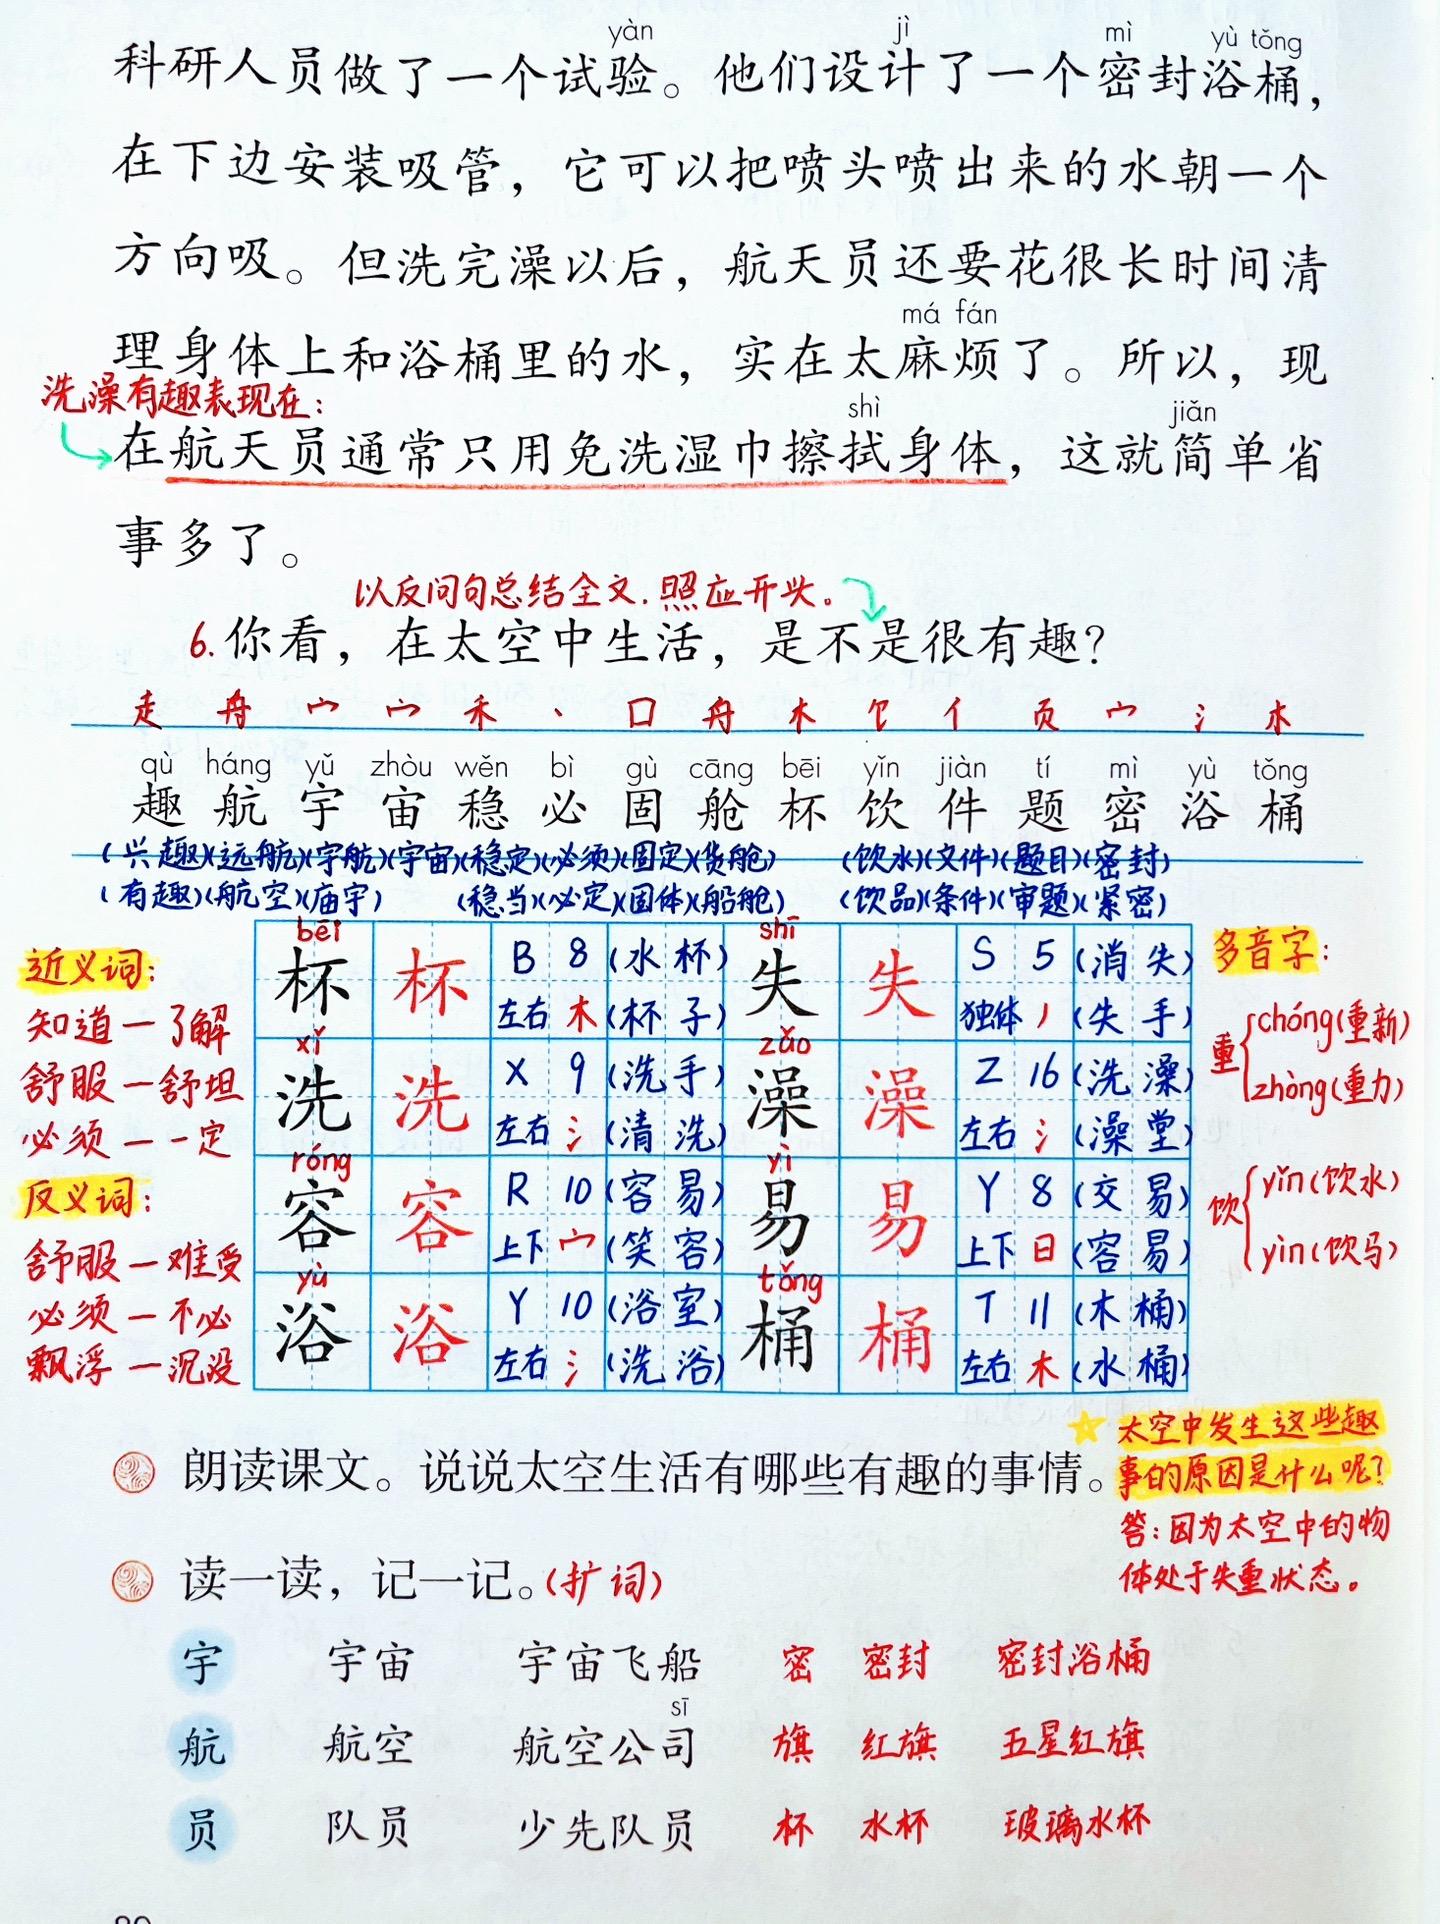 yàn jì mì yù tǒng
科研人员做了一个试验。他们设计了一个密封浴桶，
在下边安装吸管，它可以把喷头喷出来的水朝一个
方向吸。但洗完澡以后，航天员还要花很长时间清
má fán
理身体上和浴桶里的水，实在太麻烦了。所以，现
洗澡有趣表现在：
shì jiǎn
在航天员通常只用免洗湿巾擦拭身体，这就简单省
事多了。
以反问句总结全文.照应开头。
6.你看，在太空中生活，是不是很有趣？
走 舟 宀 宀 禾 丶 囗 舟 木 饣 亻 页 宀 氵 木
qù háng yǔ zhòu wěn bì gù cāng bēi yǐn jiàn tí mì yù tǒng
趣 航 宇 宙 稳 必 固 舱 杯 饮 件 题 密 浴 桶
(兴趣)(远航)(宇航)(宇宙)(稳定)(必须)(固定)(货舱) (饮水)(文件)(题目)(密封)
(有趣)(航空)(庙宇) (稳当)(必定)(固体)(船舱) (饮品)(条件)(审题)(紧密)
近义词：
知道—了解
舒服—舒坦
必须—一定
反义词：
舒服—难受
必须—不必
飘浮—沉没
bēi shī
杯 杯 B 8 (水杯) 失 失 S 5 (消失)
左右 木 (杯子) 独体 丿 (失手)
xǐ zǎo
洗 洗 X 9 (洗手) 澡 澡 Z 16 (洗澡)
左右 氵 (清洗) 左右 氵 (澡堂)
róng yì
容 容 R 10 (容易) 易 易 Y 8 (交易)
上下 宀 (笑容) 上下 日 (容易)
yù tǒng
浴 浴 Y 10 (浴室) 桶 桶 T 11 (木桶)
左右 氵 (洗浴) 左右 木 (水桶)
多音字：
重
chóng(重新)
zhòng(重力)
饮
yǐn(饮水)
yìn(饮马)
朗读课文。说说太空生活有哪些有趣的事情。
太空中发生这些趣
事的原因是什么呢？
答：因为太空中的物
体处于失重状态。
读一读，记一记。(扩词)
宇 宇宙 宇宙飞船 密 密封 密封浴桶
sī
航 航空 航空公司 旗 红旗 五星红旗
员 队员 少先队员 杯 水杯 玻璃水杯